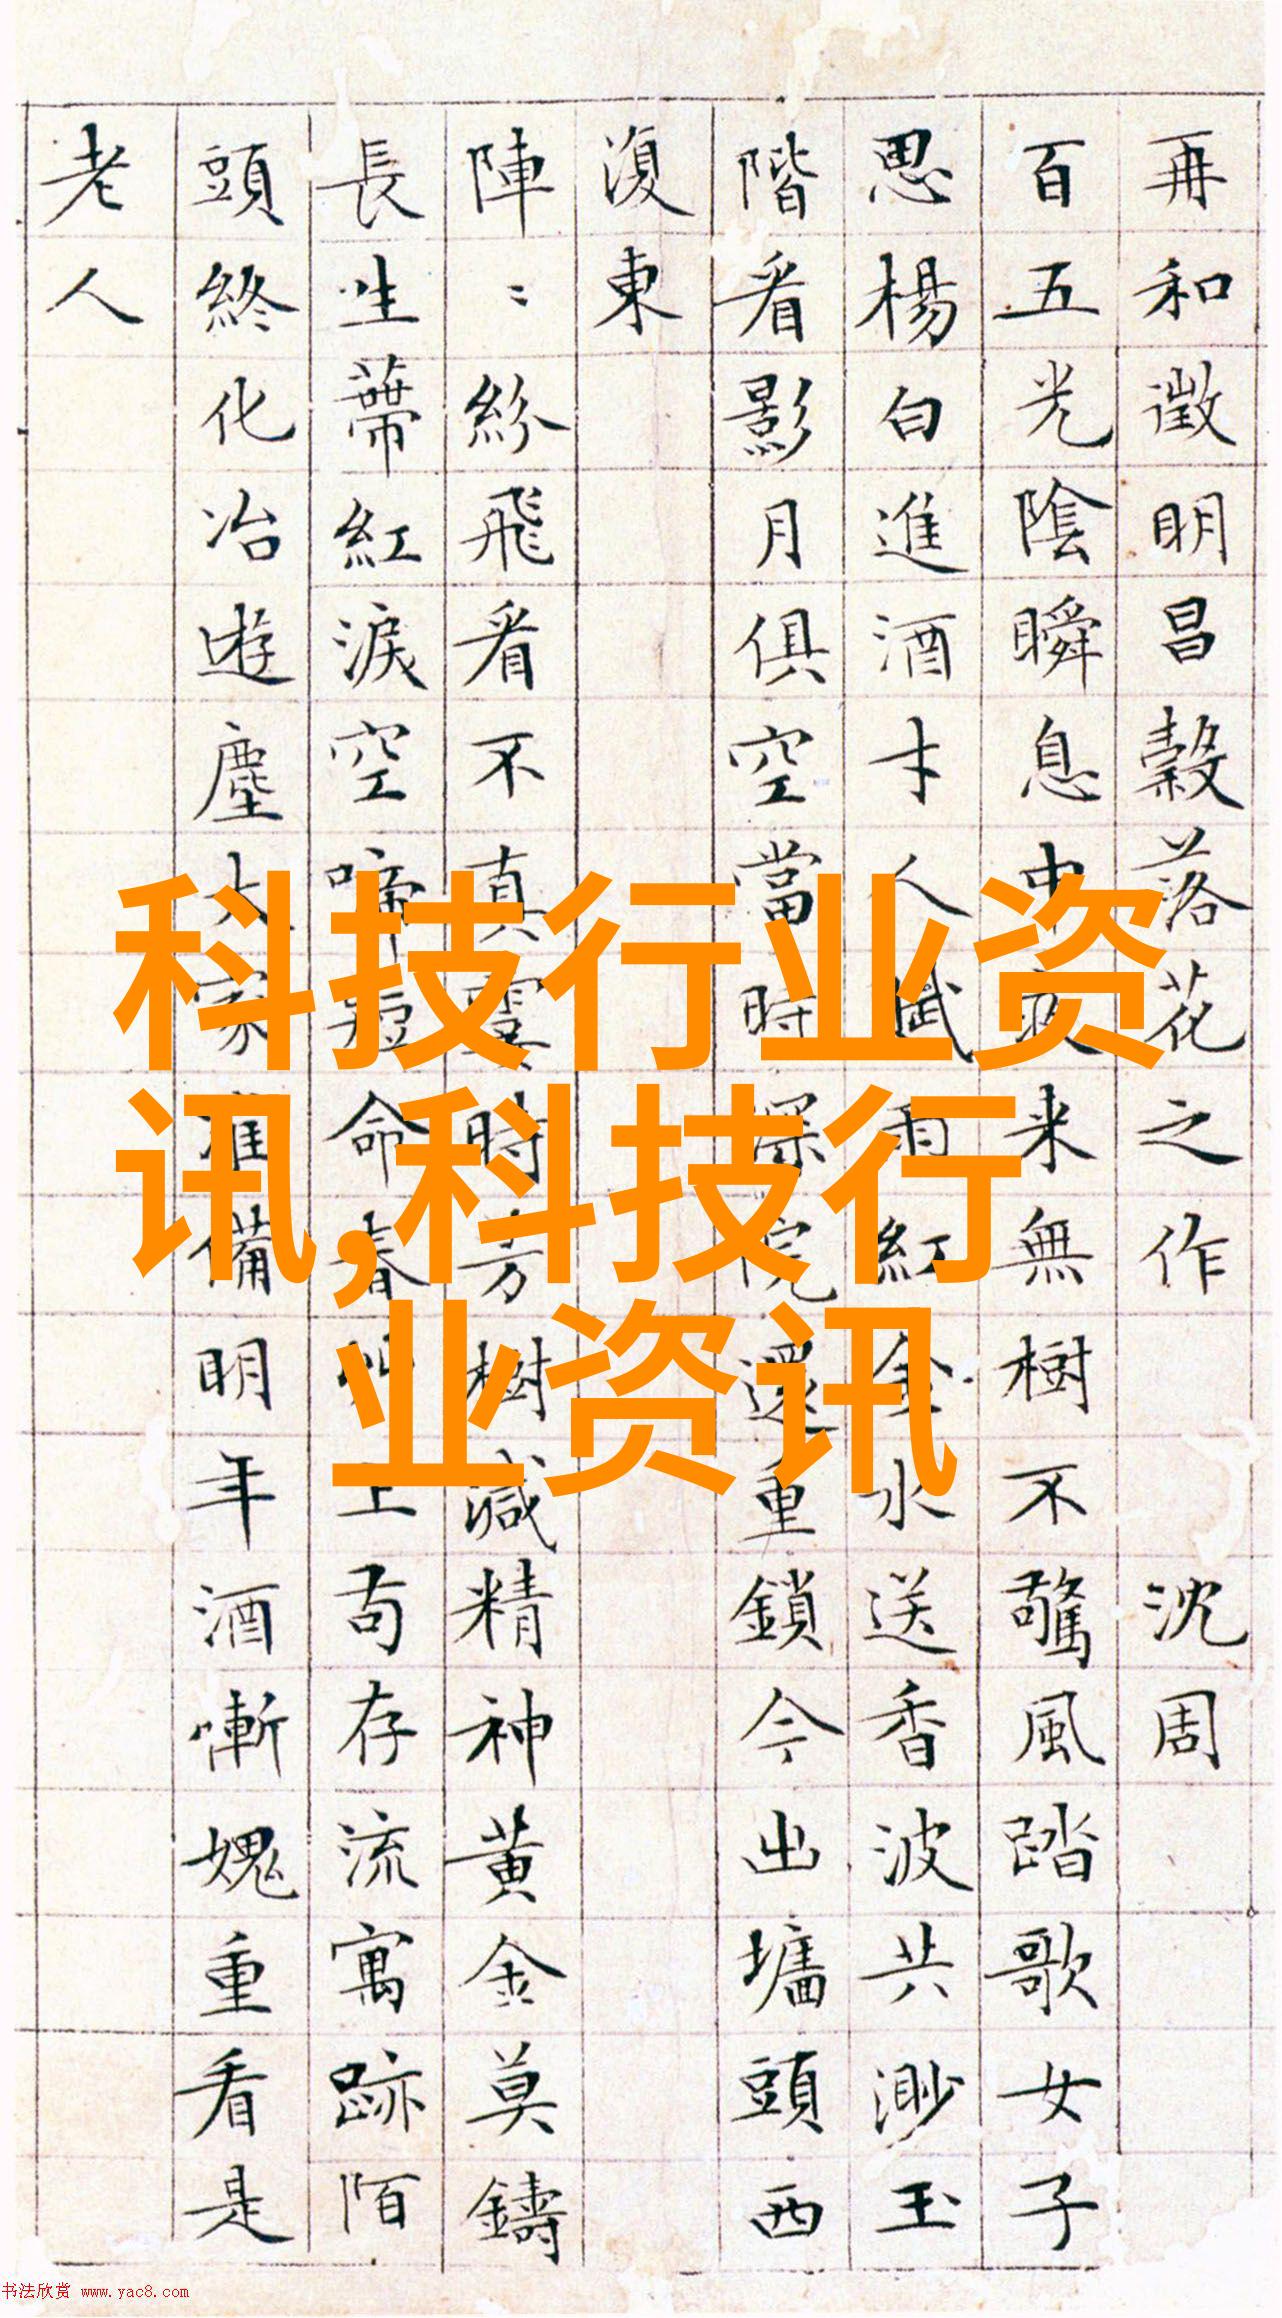 再和徵明昌穀落花之作 沈周
百五光陰瞬息中夜来無樹不驚風踏歌女子
思楊白進酒才人賦雨紅金水送香波共渺玉
階看影月俱空當時深院還重鎖今出墻頭西
復東
陣〻紛飛看不真霎時芳樹減精神黄金莫鑄
長生蔕紅淚空啼短命春上苟存流寓跡陌
頭終化冶遊塵大家准備明年酒慚媿重看是
老人
科技行业资
讯,科技行
业资讯
书法欣赏 www.yac8.com